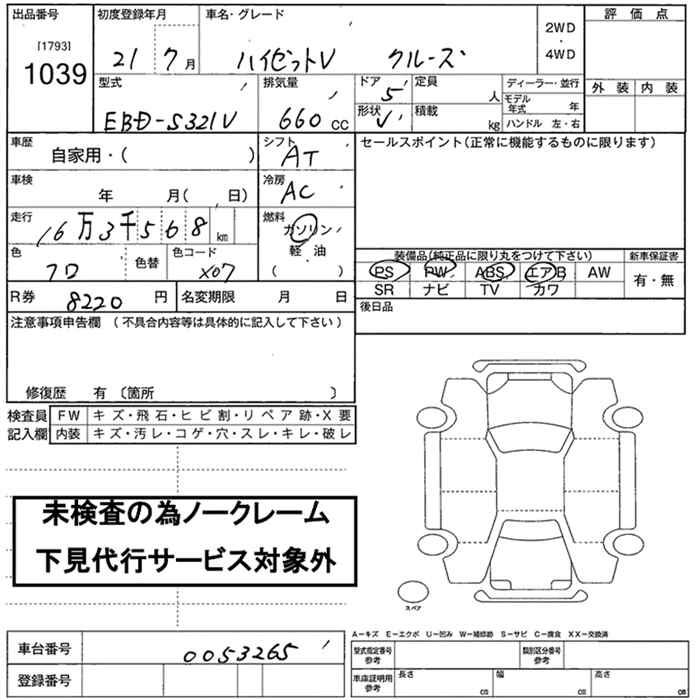 出品番号 初度登録年月 車名・グレード 2WD・4WD 評価点
[1793]
1039 21 7月 ハイゼットV クルーズ
型式 排気量 ドア 5 定員 人 ディーラー・並行 外装 内装
EBD-S321V 660cc 形状 V 積載 kg モデル年式 年
ハンドル 左・右
車歴 自家用・( ) シフト AT セールスポイント(正常に機能するものに限ります)
車検 年 月( 日) 冷房 AC
走行 16万3千568km 燃料 ガソリン・軽・油 ( )
色 クロ 色替 色コード X07
装備品(純正品に限り丸をつけて下さい) 新車保証書
PS PW ABS エアB AW 有・無
SR ナビ TV カワ
R券 8220円 名変期限 月 日 後日品
注意事項申告欄 (不具合内容等は具体的に記入して下さい)
修復歴 有 〔箇所 〕
検査員 FW キズ・飛石・ヒビ割・リペア跡・X要
記入欄 内装 キズ・汚レ・コゲ・穴・スレ・キレ・破レ
未検査の為ノークレーム
下見代行サービス対象外
スペア
A－キズ E－エクボ U－凹み W－補修跡 S－サビ C－腐食 XX－交換済
車台番号 0053265 型式指定番号 参考 類別区分番号 参考
登録番号 車庫証明用 参考 長さ cm 幅 cm 高さ cm